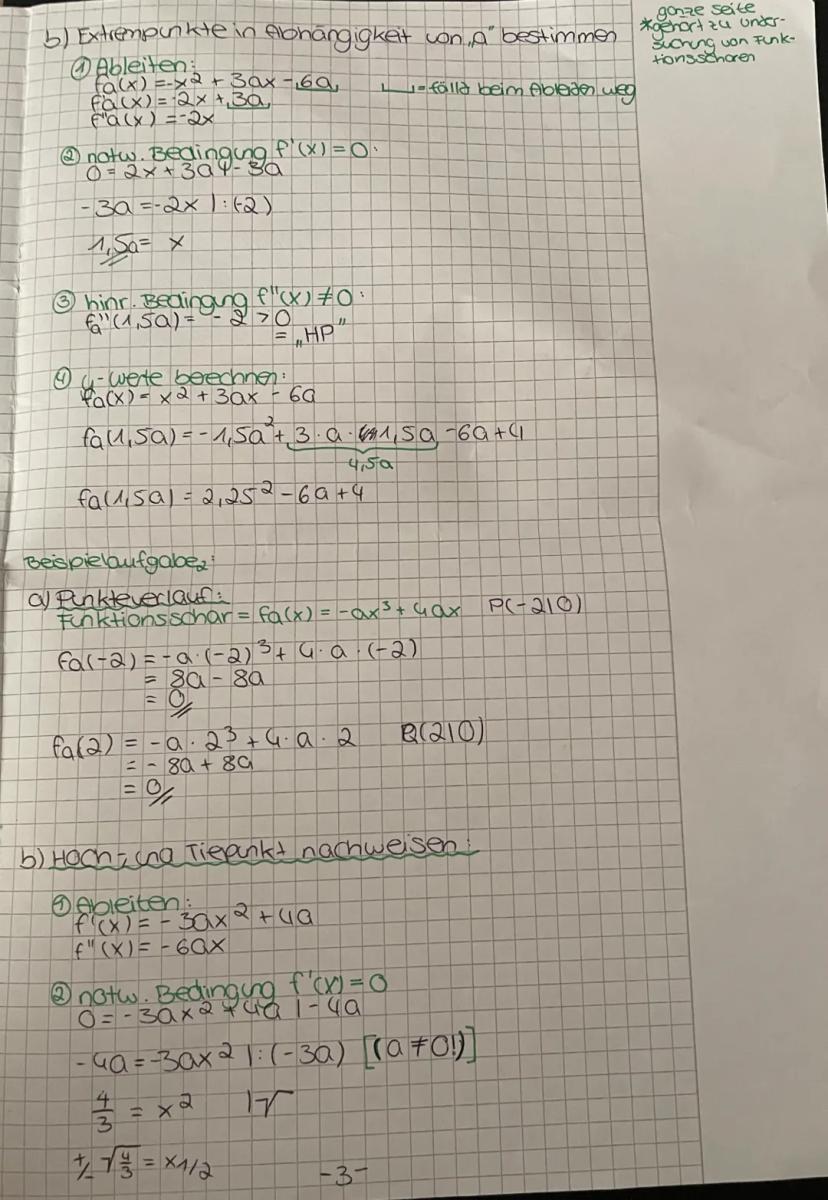 b) Extrempunkte in Abhängigkeit von „a" bestimmen
ganze Seite
*gehört zu Unter-
suchung von Funk-
tionsscharen
① Ableiten:
fa(x) = -x² + 3ax - 6a
⌊⌋ = fällt beim Ableiten weg
f'a(x) = -2x + 3a
f''a(x) = -2x
② notw. Bedingung f'(x) = 0:
0 = 2x + 3a | - 3a
-3a = -2x | : (-2)
1,5a = x
③ hinr. Bedingung f''(x) ≠ 0:
fa''(1,5a) = - 2 > 0
= „HP"
④ y-Werte berechnen:
fa(x) = x² + 3ax - 6a
fa(1,5a) = -1,5a² + 3 · a · 1,5a - 6a + 4
4,5a
fa(1,5a) = 2,25² - 6a + 4
Beispielaufgabe₂:
a) Punkteverlauf:
Funktionsschar = fa(x) = -ax³ + 4ax P(-2|0)
fa(-2) = -a · (-2)³ + 4 · a · (-2)
= 8a - 8a
= 0
fa(2) = -a · 2³ + 4 · a · 2 Q(2|0)
= - 8a + 8a
= 0
b) Hoch- und Tiepunkt nachweisen:
① Ableiten:
f'(x) = - 3ax² + 4a
f''(x) = - 6ax
② notw. Bedingung f'(x) = 0
0 = - 3ax² + 4a | - 4a
- 4a = -3ax² | : (-3a) [(a ≠ 0!)]
4/3 = x² | √
+/- √4/3 = x1/2
-3-